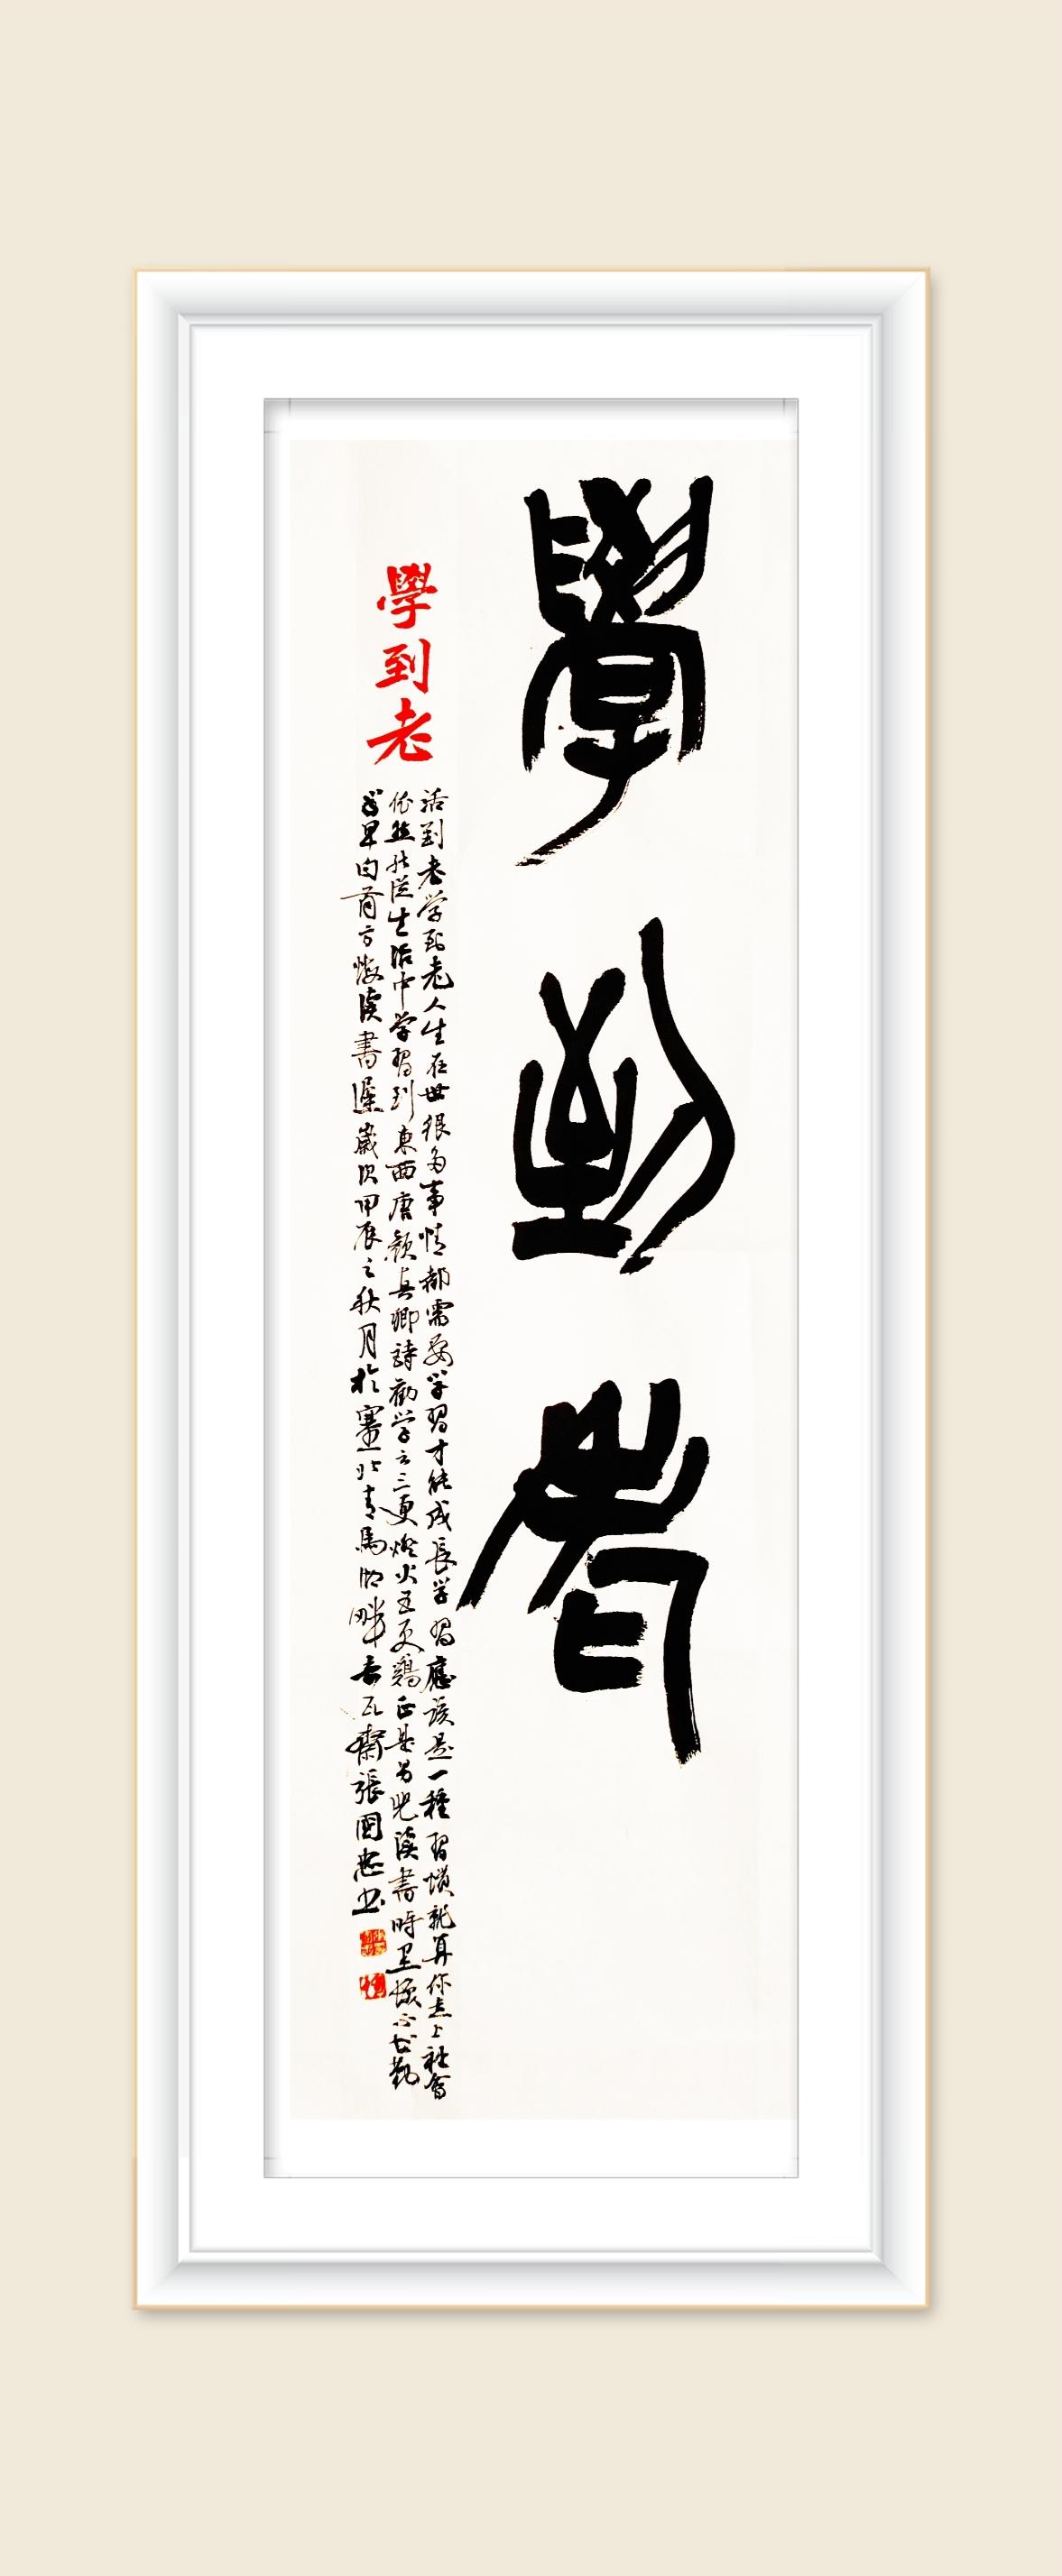 學到老
學到老
活到老学到老人生在世很多事情都需要学習才能成長学習應该是一種習慣就算你走上社會
依然能從生活中学習到東西唐颜真卿詩勸学云三更燈火五更鷄正是男児读書時黑髮不知勤
学早白首方悔读書遲嵗次甲辰之秋月於塞北青馬湖畔 瓦齋張國忠书